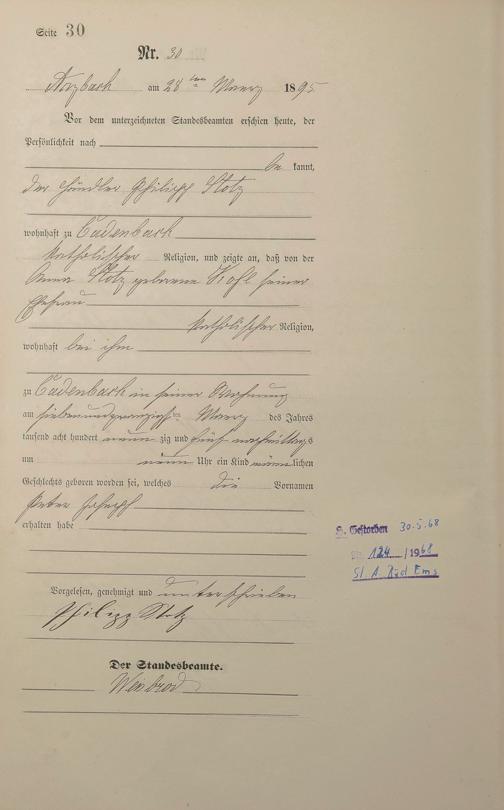 Seite 30
Nr. 30
Arzbach am 28ten Maerz 1895
Vor dem unterzeichneten Standesbeamten erschien heute, der
Persönlichkeit nach
be kannt,
der Händler Philipp Stotz
wohnhaft zu Cadenbach
katholischer Religion, und zeigte an, daß von der
Anna Stotz geborene seiner
Ehefrau
katholischer Religion,
wohnhaft bei ihm
zu Cadenbach in seiner Wohnung
am siebenundzwanzigsten Maerz des Jahres
tausend acht hundert neun zig und fünf nachmittags
um neun Uhr ein Kind männlichen
Geschlechts geboren worden sei, welches die Vornamen
Peter Joseph
erhalten habe
Vorgelesen, genehmigt und unterschrieben
Philipp Stotz
Der Standesbeamte.
Weisbrod
Gestorben 30.5.68
124 / 1968
St. A. Bad Ems